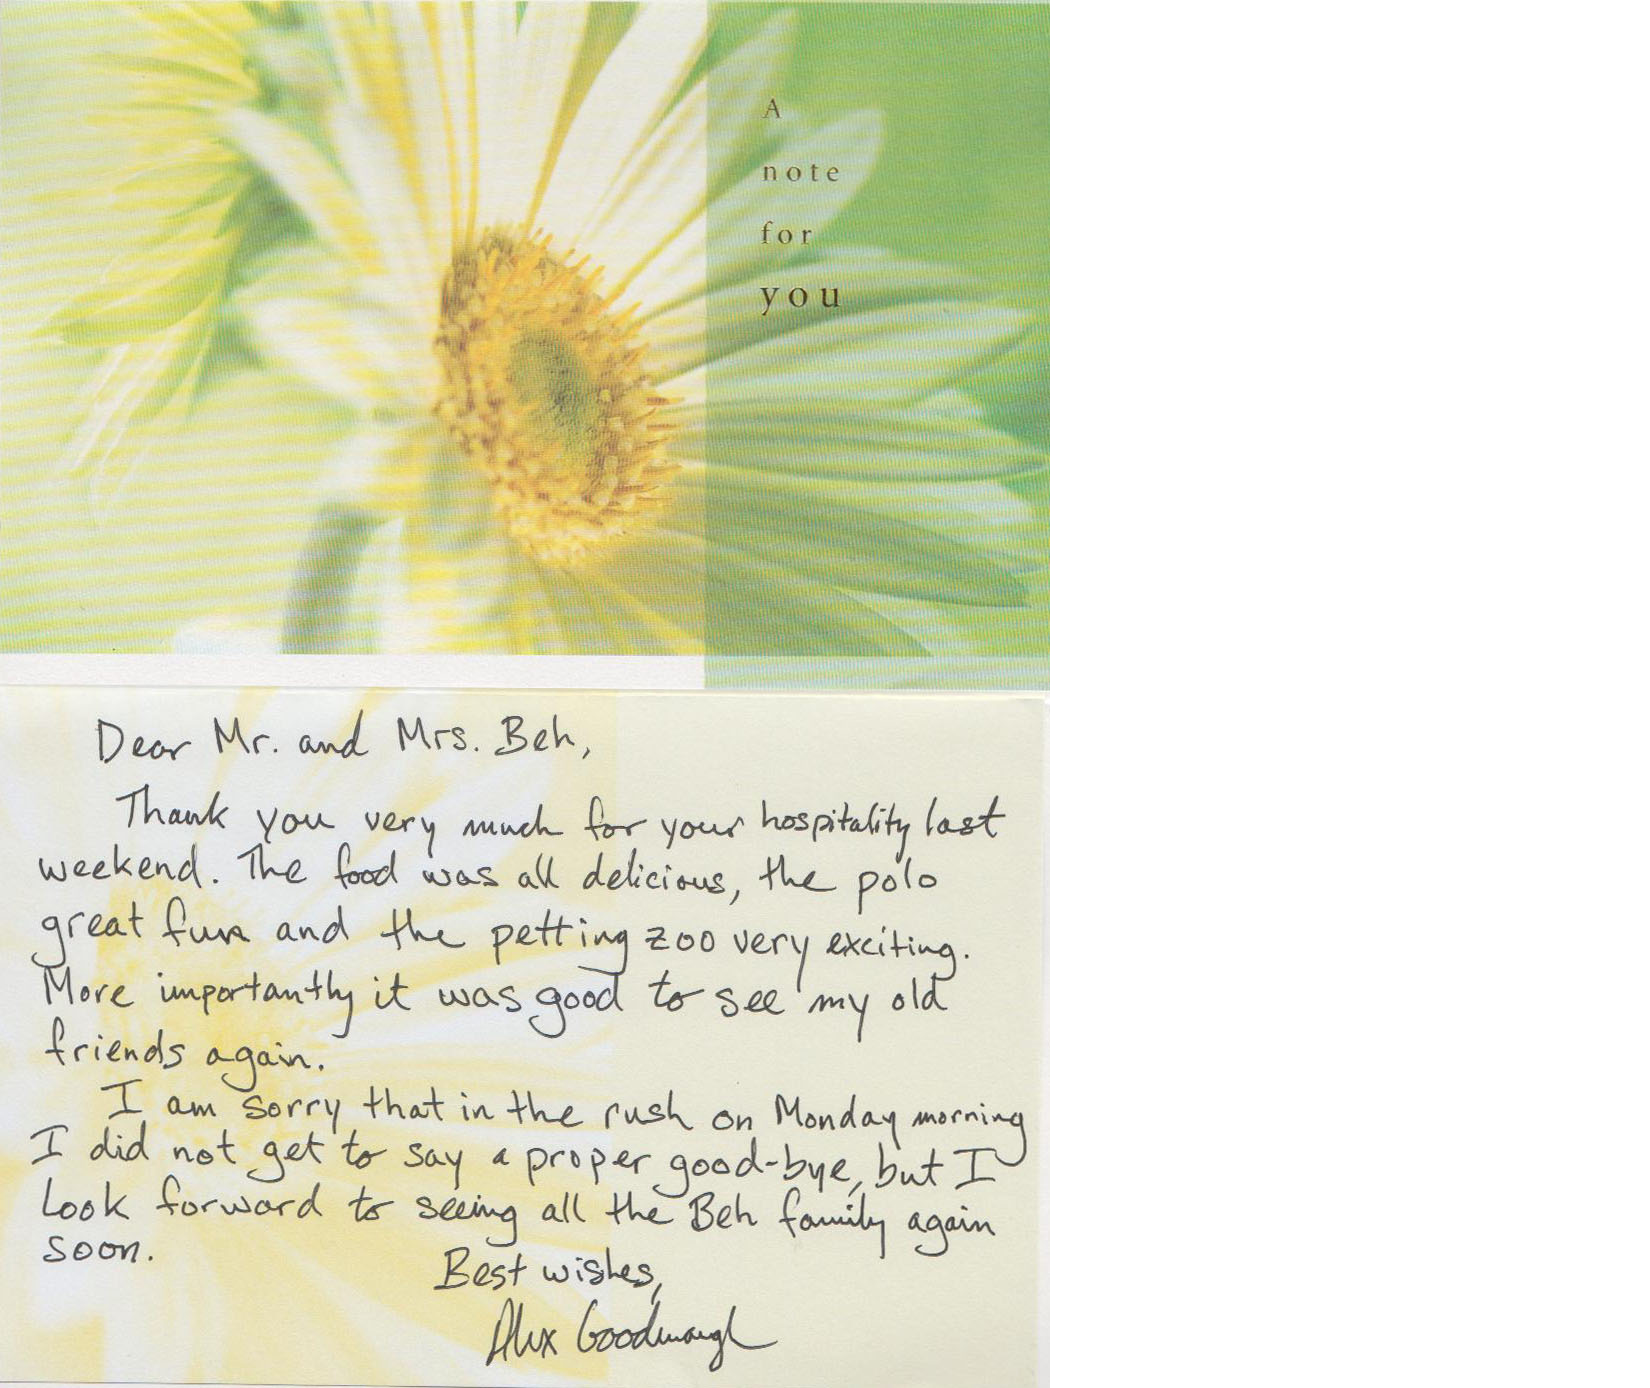 A
note
for
you
Dear Mr. and Mrs. Beh,
Thank you very much for your hospitality last
weekend. The food was all delicious, the polo
great fun and the petting zoo very exciting.
More importantly it was good to see my old
friends again.
I am sorry that in the rush on Monday morning
I did not get to say a proper good-bye, but I
look forward to seeing all the Beh family again
soon.
Best wishes,
Alex